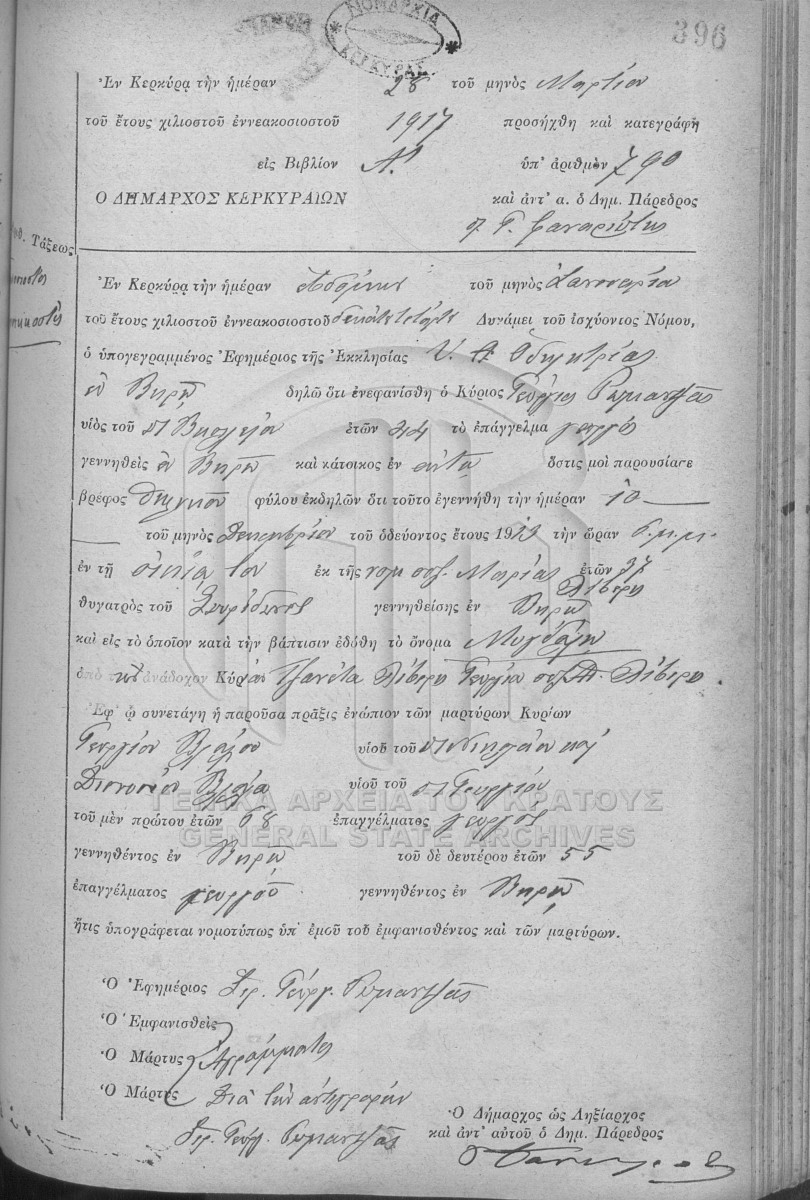 ΝΟΜΑΡΧΙΑ ΚΕΡΚΥΡΑΣ
396
Ἐν Κερκύρᾳ τὴν ἡμέραν 28 τοῦ μηνὸς Μαρτίου
τοῦ ἔτους χιλιοστοῦ ἐννεακοσιοστοῦ 1917 προσήχθη καὶ κατεγράφη
εἰς Βιβλίον Α! ὑπ' ἀριθμὸν 790
Ο ΔΗΜΑΡΧΟΣ ΚΕΡΚΥΡΑΙΩΝ καὶ ἀντ' α. ὁ Δημ. Πάρεδρος
Τάξεως
Ἐν Κερκύρᾳ τὴν ἡμέραν τοῦ μηνὸς Ἰανουαρίου
τοῦ ἔτους χιλιοστοῦ ἐννεακοσιοστοῦ δεκάτου τετάρτου Δυνάμει τοῦ ἰσχύοντος Νόμου,
ὁ ὑπογεγραμμένος Ἐφημέριος τῆς Ἐκκλησίας Υ. Θ. Ὁδηγητρίας
ἐν δηλῶ ὅτι ἐνεφανίσθη ὁ Κύριος Γεώργιος Ρωμαντζᾶς
υἱὸς τοῦ ἐτῶν 44 τὸ ἐπάγγελμα γεωργὸς
γεννηθεὶς ἐν καὶ κάτοικος ἐν αὐτῷ ὅστις μοὶ παρουσίασε
βρέφος θηλυκοῦ φύλου ἐκδηλῶν ὅτι τοῦτο ἐγεννήθη τὴν ἡμέραν 10
τοῦ μηνὸς Δεκεμβρίου τοῦ ὁδεύοντος ἔτους 1913 τὴν ὥραν 6 μ.μ.
ἐν τῇ οἰκίᾳ του ἐκ τῆς νομ. συζ. Μαρίας ἐτῶν 37
θυγατρὸς τοῦ Σπυρίδωνος Λίβερη γεννηθείσης ἐν
καὶ εἰς τὸ ὁποῖον κατὰ τὴν βάπτισιν ἐδόθη τὸ ὄνομα Μαγδάλω
ἀπὸ τὸν ἀνάδοχον Κύριον Τζανέτα Λίβερη Γεωργία συζ. Λίβερη.
Ἐφ' ᾧ συνετάγη ἡ παροῦσα πρᾶξις ἐνώπιον τῶν μαρτύρων Κυρίων
Γεωργίου Βλάχου υἱοῦ τοῦ Νικολάου καὶ
Διονυσίου υἱοῦ τοῦ Γεωργίου
ΓΕΝΙΚΑ ΑΡΧΕΙΑ ΤΟΥ ΚΡΑΤΟΥΣ
τοῦ μὲν πρώτου ἐτῶν 68 ἐπαγγέλματος γεωργοῦ
GENERAL STATE ARCHIVES
γεννηθέντος ἐν τοῦ δὲ δευτέρου ἐτῶν 55
ἐπαγγέλματος γεωργοῦ γεννηθέντος ἐν
ἥτις ὑπογράφεται νομοτύπως ὑπ' ἐμοῦ τοῦ ἐμφανισθέντος καὶ τῶν μαρτύρων.
Ὁ Ἐφημέριος Ἱερ. Γεώργ. Ρωμαντζᾶς
Ὁ Ἐμφανισθεὶς
Ὁ Μάρτυς Ἀγράμματοι
Ὁ Μάρτυς Διὰ τὴν ἀντιγραφὴν
Ἱερ. Γεώργ. Ρωμαντζᾶς
Ὁ Δήμαρχος ὡς Ληξίαρχος
καὶ ἀντ' αὐτοῦ ὁ Δημ. Πάρεδρος